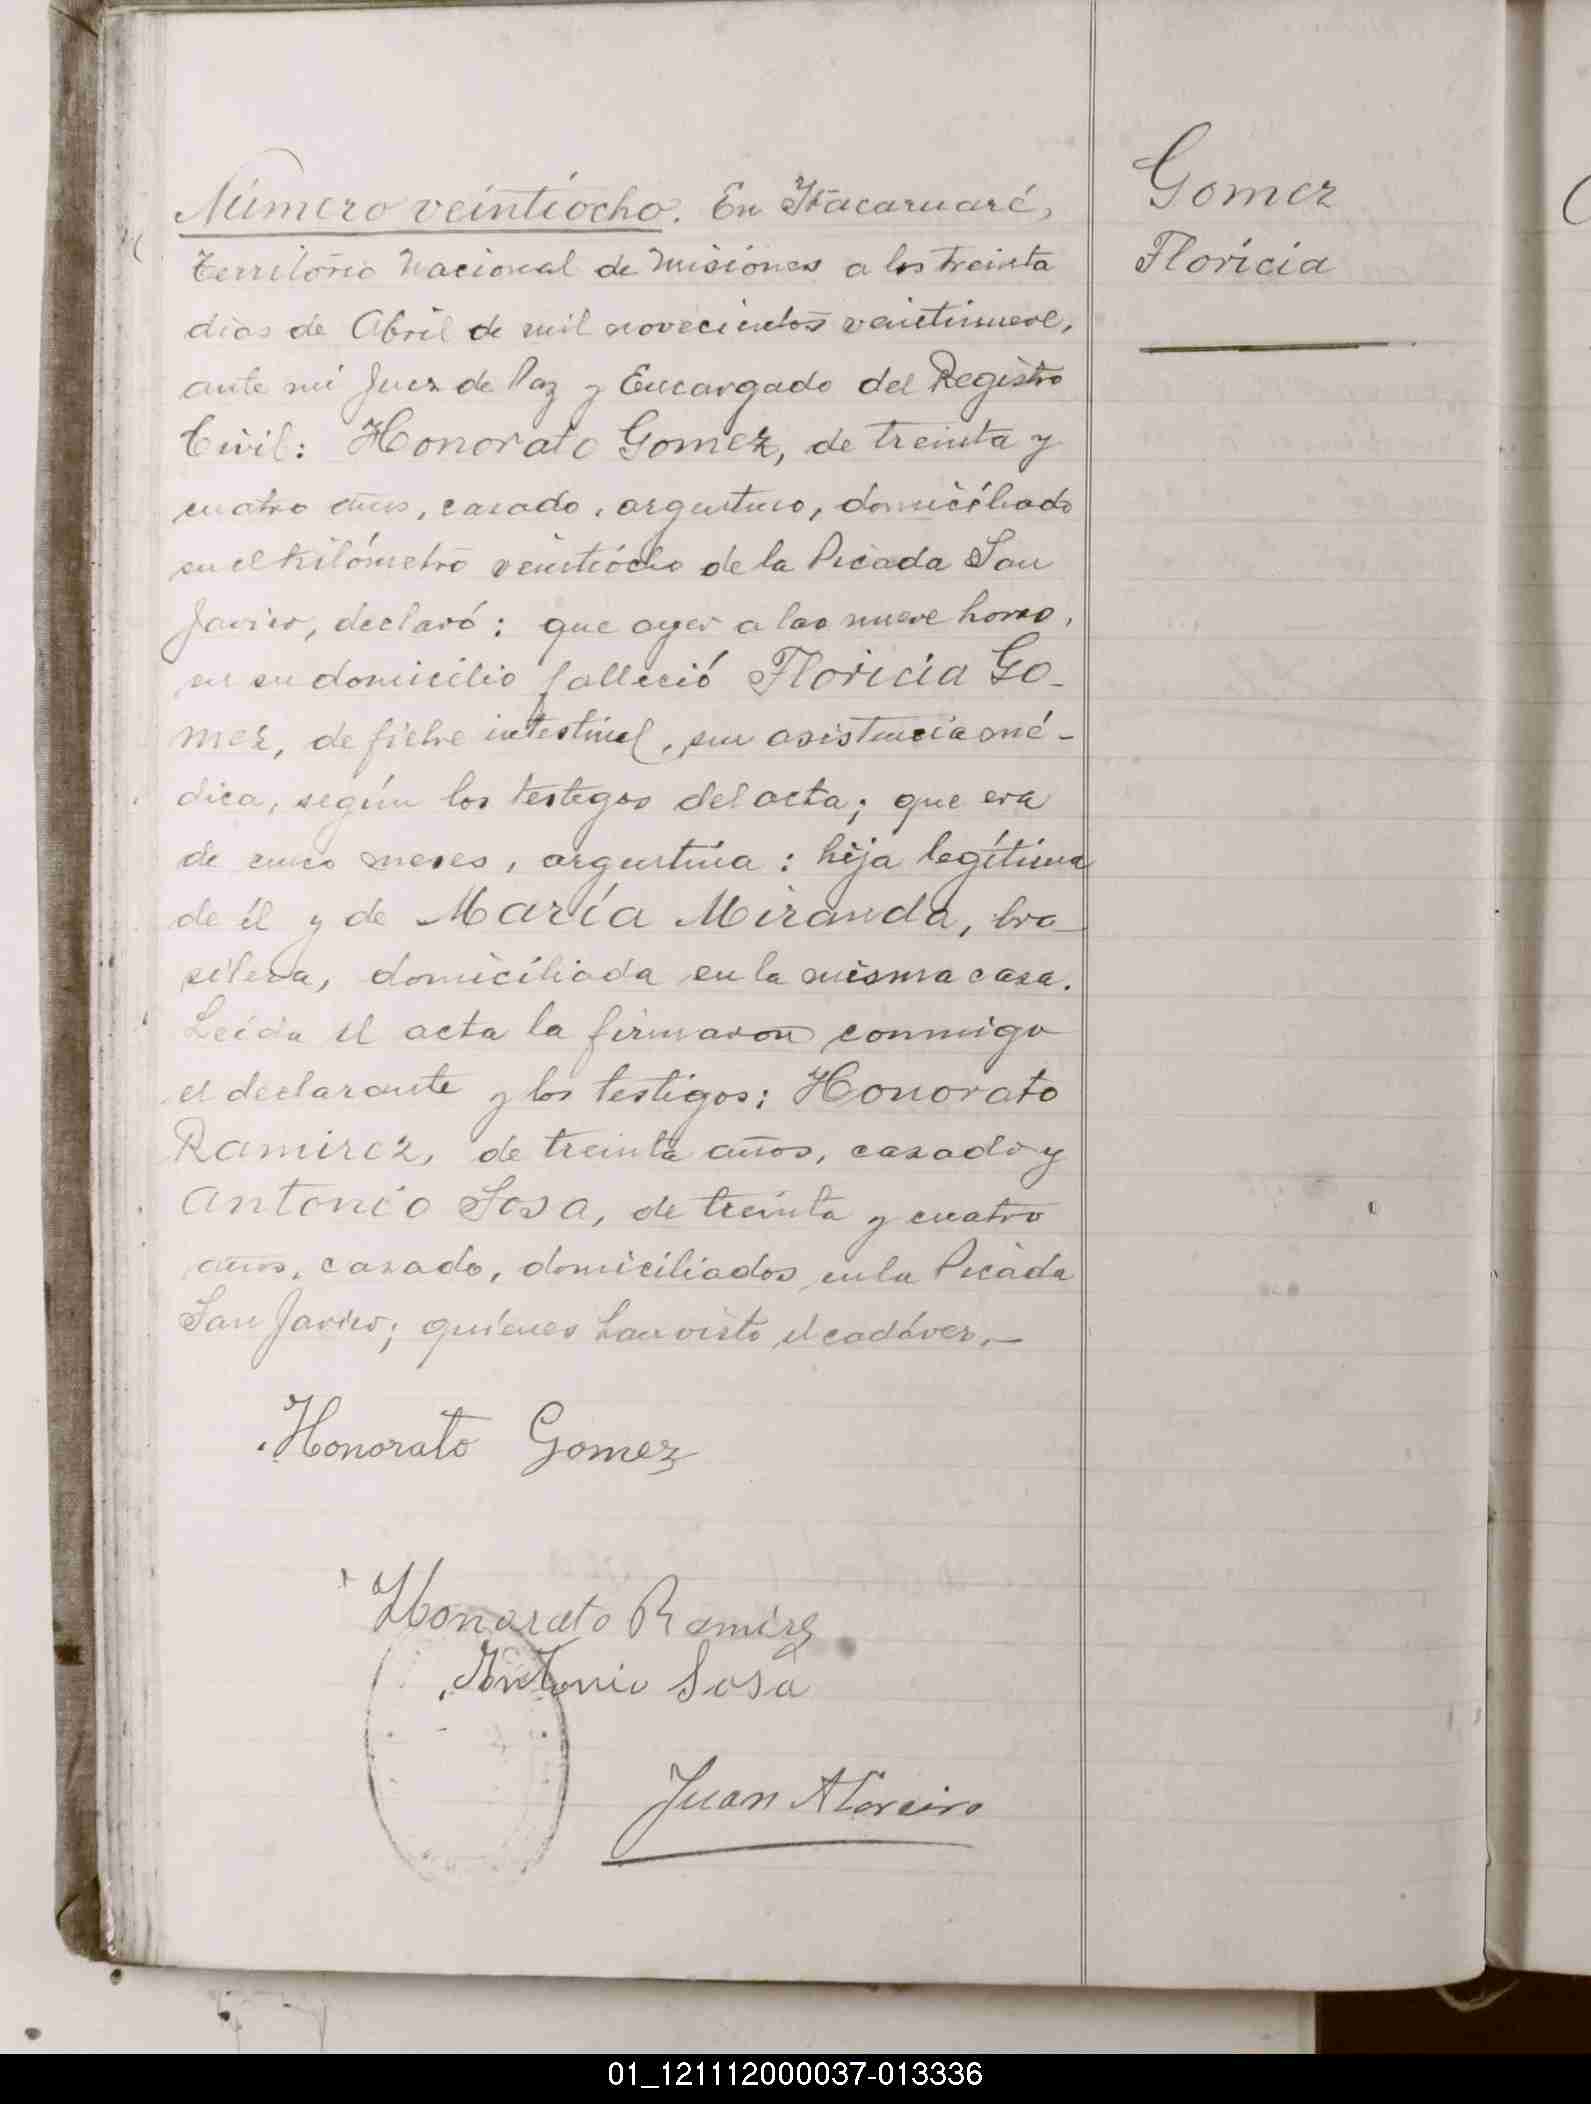 Número veintiocho. En Itacaruaré,
Territorio Nacional de Misiones a los treinta
dias de Abril de mil novecientos veintinueve,
ante mi Juez de Paz y Encargado del Registro
Civil: Honorato Gomez, de treinta y
cuatro años, casado, argentino, domiciliado
en el kilómetro veintiócho de la Picada San
Javier, declaró: que ayer a las nueve horas,
en su domicilio falleció Floricia Go-
mez, de fiebre intestinal, sin asistencia mé-
dica, según los testigos del acta; que era
de cinco meses, argentina: hija legítima
de él y de María Miranda, bra-
silera, domiciliada en la misma casa.
Leida el acta la firmaron conmigo
el declarante y los testigos: Honorato
Ramirez, de treinta años, casado y
Antonio Sosa, de treinta y cuatro
años, casado, domiciliados en la Picada
San Javier; quiénes han visto el cadáver.—
Honorato Gomez
Honorato Ramirez
Antonio Sosa
Juan
Gomez
Floricia
01_121112000037-013336